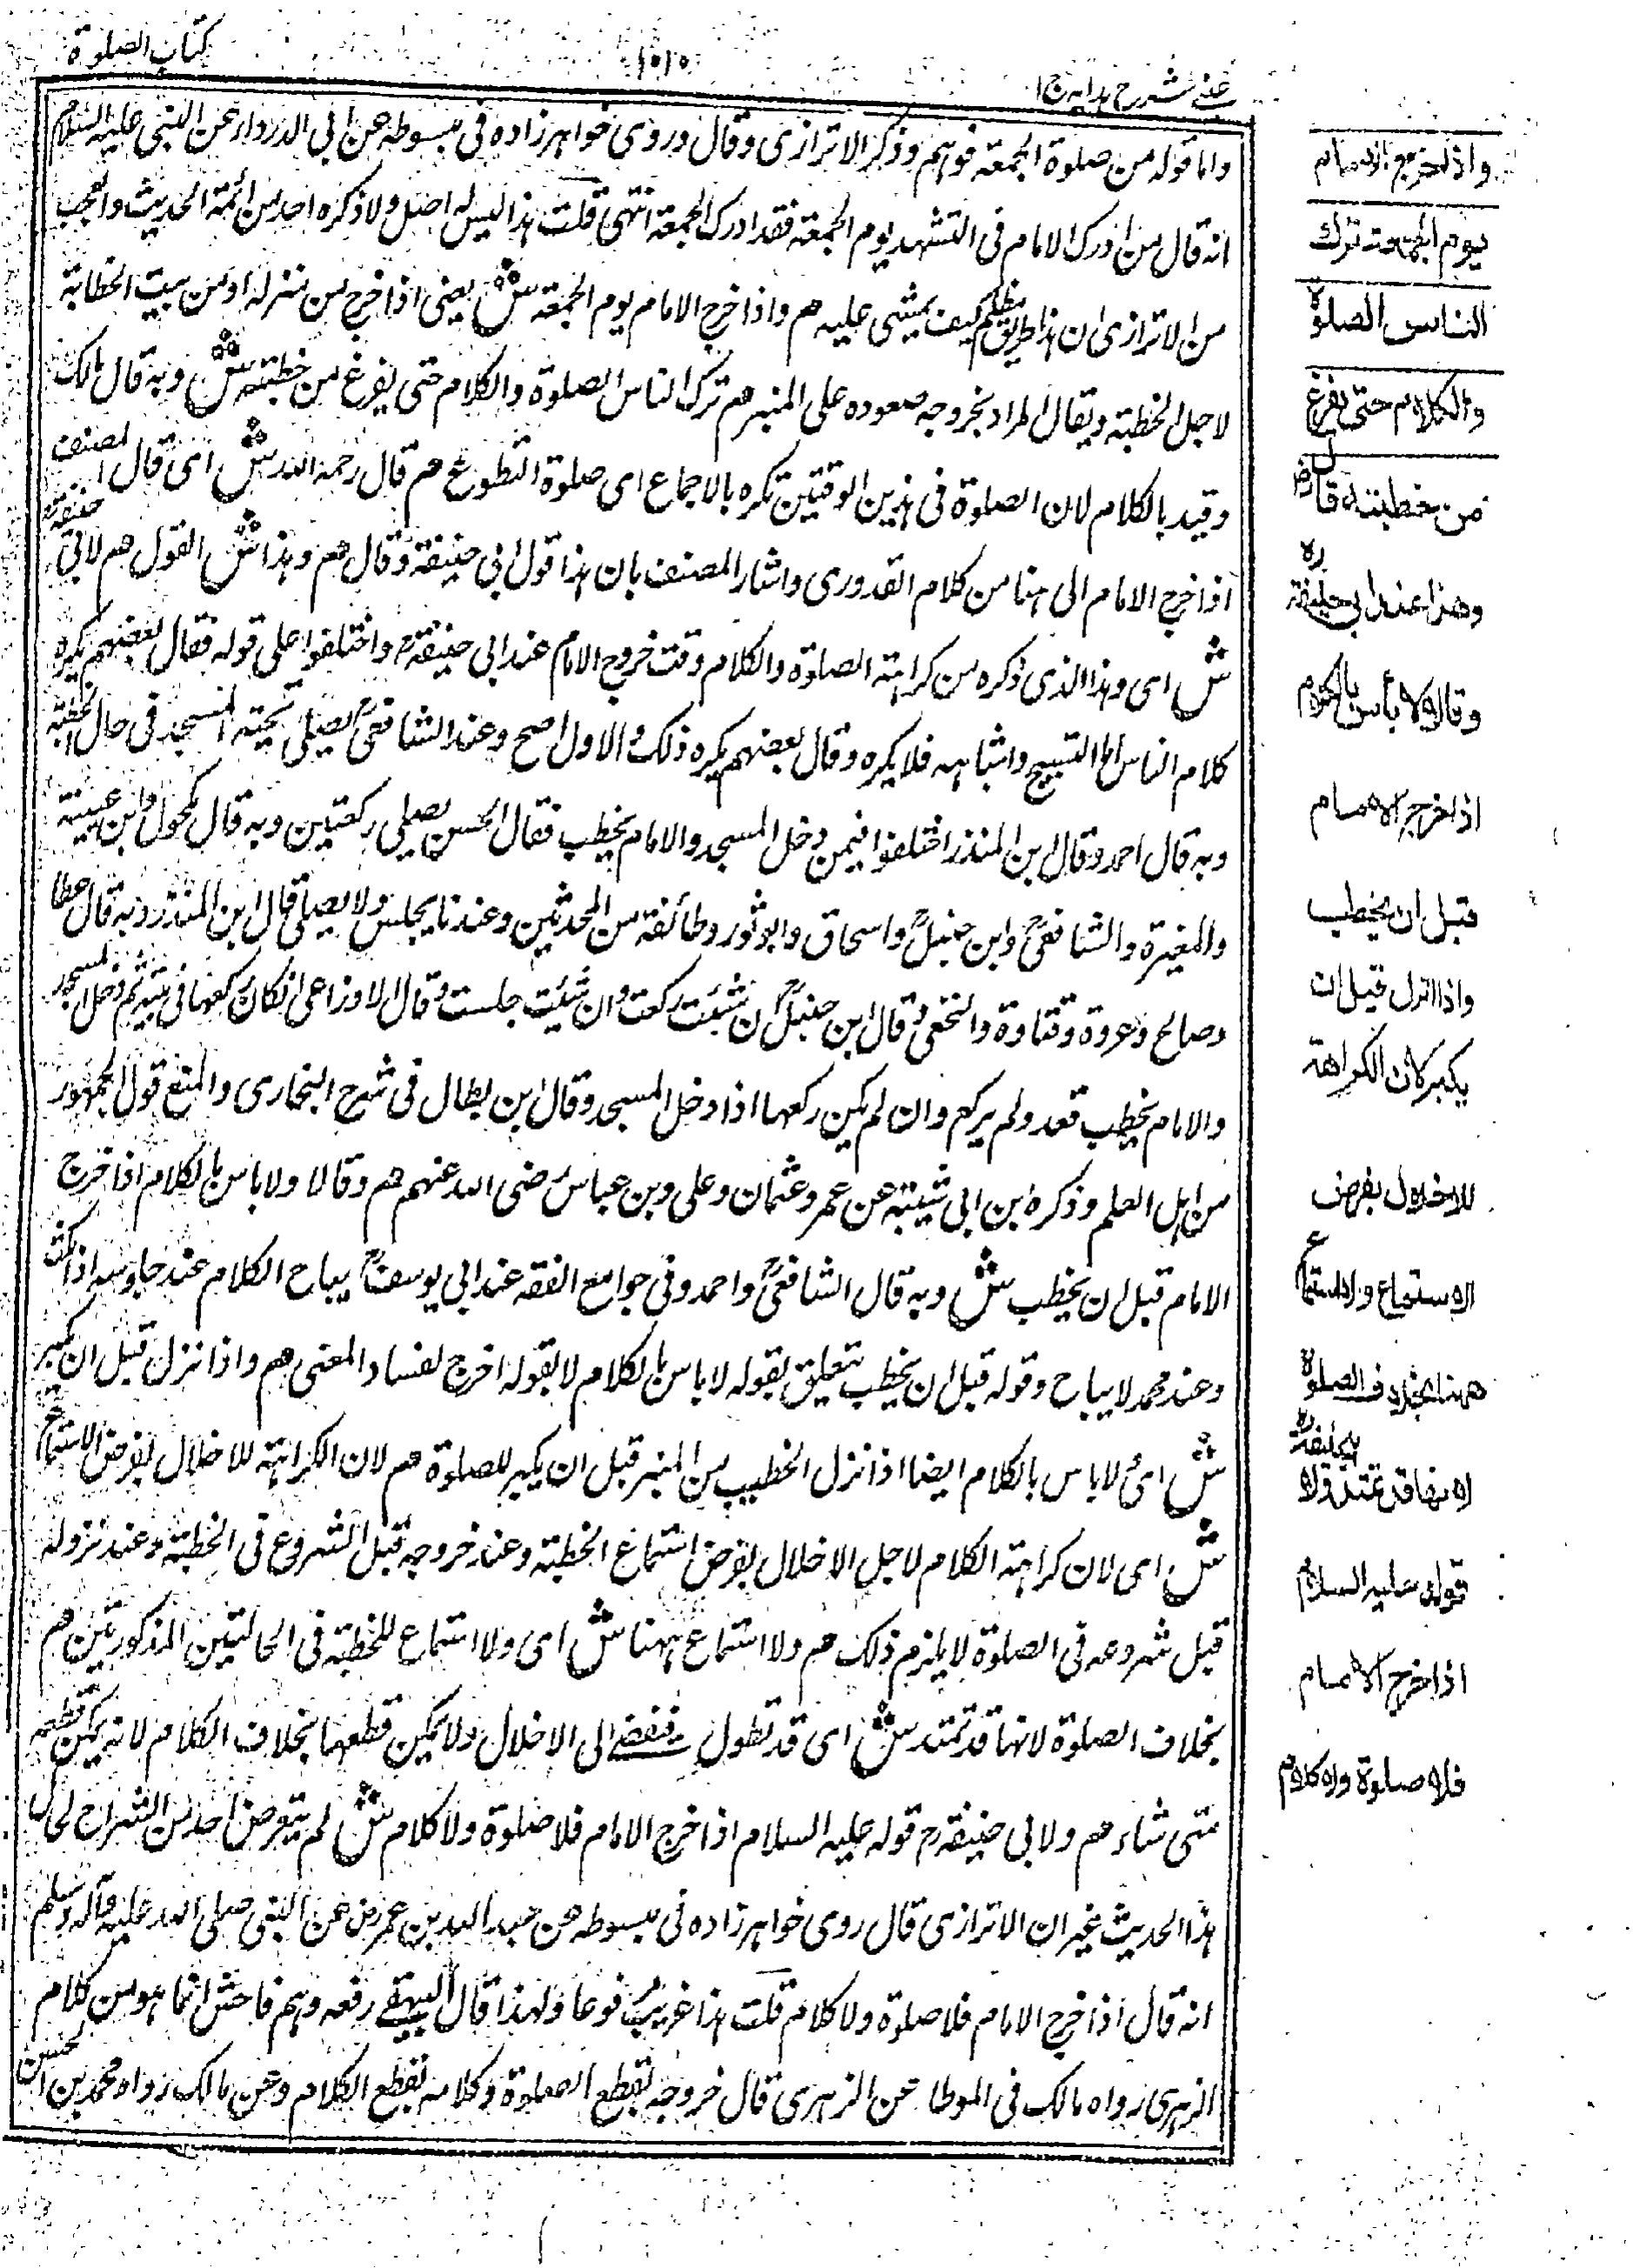 عينى شرح هدايه ج ا
١٠١٠
كتاب الصلوة
واما قوله من صلوة الجمعة فوهم وذكر الاترازى وقال وروى خواهرزاده فى مبسوطه عن ابى الدرداء عن النبى عليه السلام
انه قال من ادرك الامام فى التشهد يوم الجمعة فقد ادرك الجمعة انتهى قلت هذا ليس له اصل ولا ذكره احد من ائمة الحديث والعجب
من الاترازى ان هذا طريق مظلم كيف يمشى عليه هم واذا خرج الامام يوم الجمعة ش يعنى اذا خرج من منزله او من بيت الخطابة
لاجل الخطبة ويقال المراد بخروجه صعوده على المنبر هم ترك الناس الصلوة والكلام حتى يفرغ من خطبته ش وبه قال مالك
وقيد بالكلام لان الصلوة فى هذين الوقتين تكره بالاجماع اى صلوة التطوع هم قال رحمه الله ش اى قال المصنف
اذا خرج الامام الى هنا من كلام القدورى واشار المصنف بان هذا قول ابى حنيفة وقال هم وهذا ش القول هم لابى حنيفة
ش اى وهذا الذى ذكره من كراهة الصلوة والكلام وقت خروج الامام عند ابى حنيفة رح واختلفوا على قوله فقال بعضهم يكره
كلام الناس اما التسبيح واشباهه فلا يكره وقال بعضهم يكره ذلك والاول اصح وعند الشافعى يصلى تحية المسجد فى حال الخطبة
وبه قال احمد وقال ابن المنذر اختلفوا فيمن دخل المسجد والامام يخطب فقال الحسن يصلى ركعتين وبه قال مكحول وابن عيينة
والمغيرة والشافعى وابن حنبل واسحاق وابو ثور وطائفة من المحدثين وعندنا يجلس ولا يصلى قال ابن المنذر وبه قال عطا
وصالح وعروة وقتادة والنخعى وقال ابن حنبل ان شئت ركعت وان شئت جلست وقال الاوزاعى ان كان ركعها فى بيته ثم دخل المسجد
والامام يخطب قعد ولم يركع وان لم يكن ركعها اذا دخل المسجد وقال ابن بطال فى شرح البخارى والمنع قول الجمهور
من اهل العلم وذكره ابن ابى شيبة عن عمر وعثمان وعلى وبن عباس رضى الله عنهم هم وقالا ولا باس بالكلام اذا خرج
الامام قبل ان يخطب ش وبه قال الشافعى واحمد وفى جوامع الفقه عند ابى يوسف يباح الكلام عند جلوسه اذا سكت
وعند محمد لا يباح وقوله قبل ان يخطب يتعلق بقوله لا باس بالكلام لا بقوله اخرج لفساد المعنى هم واذا نزل قبل ان يكبر
ش اى لا باس بالكلام ايضا اذا نزل الخطيب من المنبر قبل ان يكبر للصلوة هم لان الكراهة للاخلال بفرض الاستماع
ش اى لان كراهة الكلام لاجل الاخلال بفرض استماع الخطبة وعند خروجه قبل الشروع فى الخطبة وعند نزوله
قبل شروعه فى الصلوة لا يلزم ذلك هم ولا استماع ههنا ش اى ولا استماع للخطبة فى الحالتين المذكورتين هم
بخلاف الصلوة لانها قد تمتد ش اى قد تطول فتفضے الى الاخلال ولا يمكن قطعها بخلاف الكلام لانه يمكن قطعه
متى شاء هم ولابى حنيفة رح قوله عليه السلام اذا خرج الامام فلا صلوة ولا كلام ش لم يتعرض احد من الشراح لحال
هذا الحديث غير ان الاترازى قال روى خواهرزاده فى مبسوطه عن عبد الله بن عمر رض عن النبى صلى الله عليه وآله وسلم
انه قال اذا خرج الامام فلا صلوة ولا كلام قلت هذا غريب مرفوعا ولهذا قال البيهقے رفعه وهم فاحش انما هو من كلام
الزهرى رواه مالك فى الموطا عن الزهرى قال خروجه يقطع الصلوة وكلامه يقطع الكلام وعن مالك رواه محمد بن الحسن
واذا خرج الامام
يوم الجمعة ترك
الناس الصلوة
والكلام حتى يفرغ
من خطبته قال رض
وهذا عند ابى حنيفة ره
وقالا لا بأس بالكلام
اذا خرج الامام
قبل ان يخطب
واذا نزل قبل ان
يكبر لان الكراهة
للاخلال بفرض
الاستماع ولا استماع
ههنا بخلاف الصلوة
لانها قد تمتد ولابى حنيفة ره
قوله عليه السلام
اذا خرج الامام
فلا صلوة ولا كلام